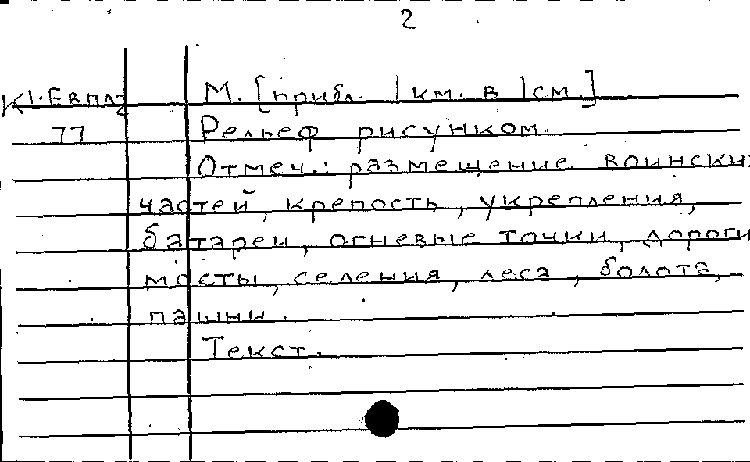 2
К1.Евпл М. [прибл. 1 км. в 1 см.]
77 Рельеф рисунком.
Отмеч.: размещение воински
частей, крепость, укрепления,
батареи, огневые точки, дороги
мосты, селения, леса, болота,
пашни.
Текст.